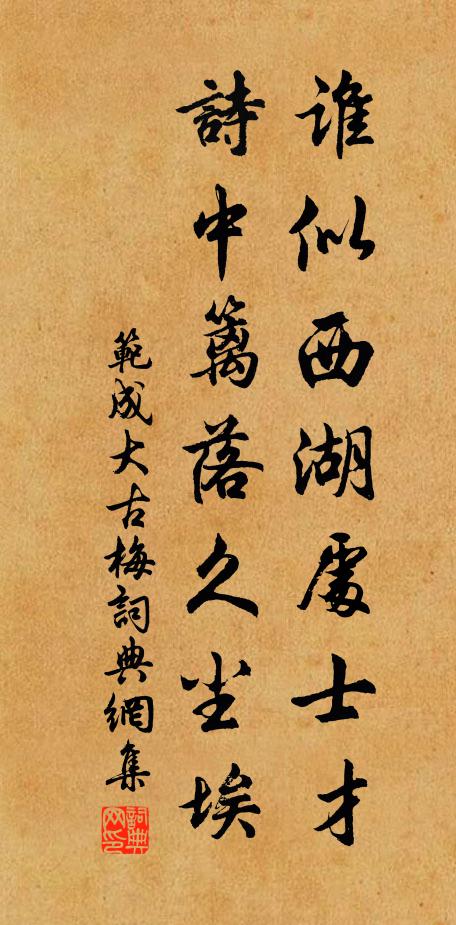 谁似西湖處士才
詩中篱落久尘埃
範成大古梅詞典網集
詞典网印